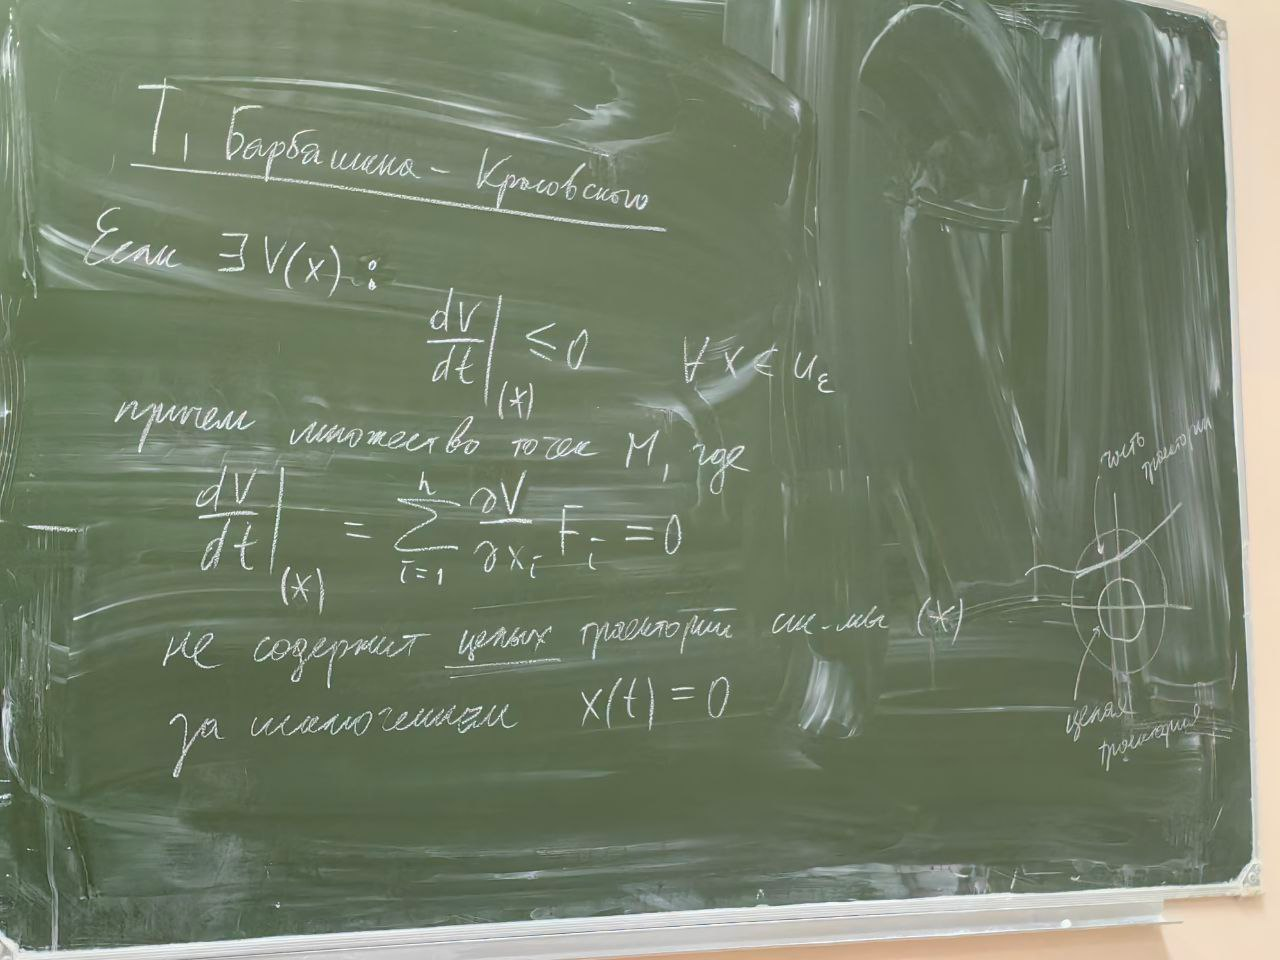 Т, Барбашина - Красовского
Если ∃ V(x) :
dV/dt |(*) ≤ 0 ∀ x ∈ U_ε
причем множество точек M, где
dV/dt |(*) = ∑_{i=1}^{n} ∂V/∂x_i F_i = 0
не содержит целых траекторий сис-мы (*)
за исключением x(t) = 0
часть
траектории
целая
траектория